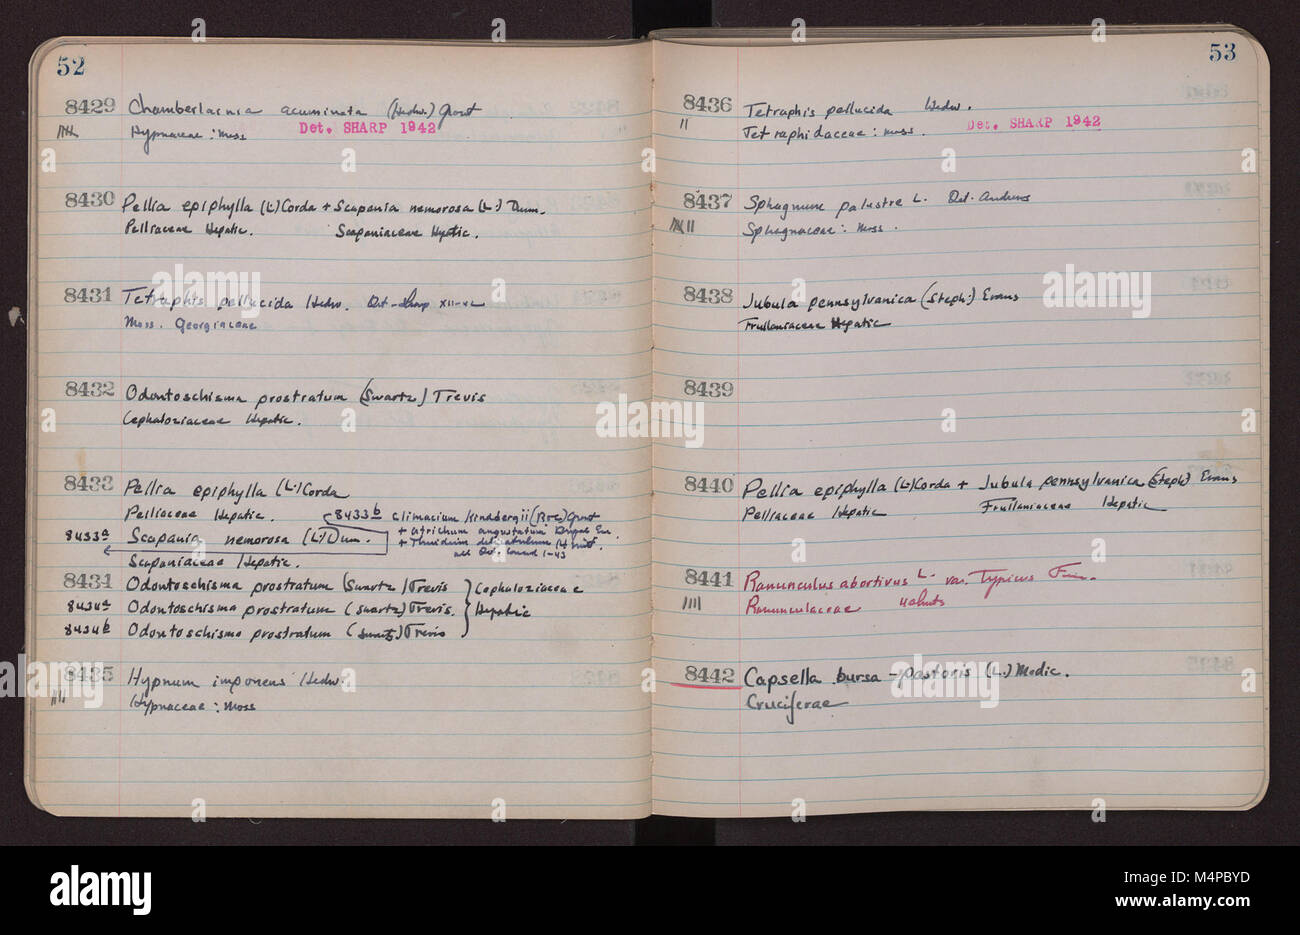 52
8429 Chamberlainia acuminata (Hedw.) Grout
Hypnaceae : Moss Det. SHARP 1942
8430 Pellia epiphylla (L.) Corda + Scapania nemorosa (L.) Dum.
Pelliaceae Hepatic. Scapaniaceae Hepatic.
8431 Tetraphis pellucida Hedw. Det. Sharp XII-42
Moss. Georgiaceae
8432 Odontoschisma prostratum (Swartz) Trevis
Cephaloziaceae Hepatic.
8433 Pellia epiphylla (L.) Corda
Pelliaceae Hepatic. 8433b Climacium Kindbergii (R&C) Grout
+ Atrichum angustatum
8433a Scapania nemorosa (L.) Dum. + Thuidium delicatulum
all Det. 1-43
Scapaniaceae Hepatic.
8434 Odontoschisma prostratum (Swartz) Trevis } Cephaloziaceae
8434a Odontoschisma prostratum (Swartz) Trevis. Hepatic
8434b Odontoschisma prostratum (Swartz) Trevis
8435 Hypnum imponens Hedw.
Hypnaceae : Moss
53
8436 Tetraphis pellucida Hedw.
Tetraphidaceae : moss. Det. SHARP 1942
8437 Sphagnum palustre L. Det. Andrews
Sphagnaceae : Moss.
8438 Jubula pennsylvanica (Steph.) Evans
Frullaniaceae Hepatic
8439
8440 Pellia epiphylla (L.) Corda + Jubula pennsylvanica (Steph.) Evans
Pelliaceae Hepatic Frullaniaceae Hepatic
8441 Ranunculus abortivus L. var. typicus
Ranunculaceae
8442 Capsella bursa-pastoris (L.) Medic.
Cruciferae
alamy
alamy
Image ID: M4PBYD
www.alamy.com